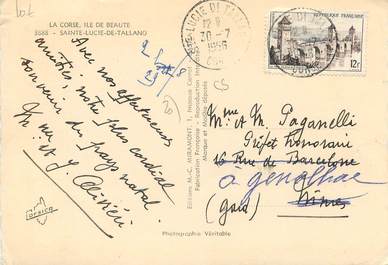 Lot
LA CORSE, ILE DE BEAUTE
8888 - SAINTE-LUCIE-DE-TALLANO
Avec nos affectueuses
amitiés, notre plus cordial
souvenir du pays natal.
M. et J. Olivieri
AFRICA
Photographie Véritable
Editions M.-C. MIRAMONT, 1,
Fabrication Française - Reproduction Interdite
Marque et Modèle déposés
STE-LUCIE DE TALLANO
12 H
30-7
1956
CORSE
REPUBLIQUE FRANÇAISE
12F
CS
20
Mme et M. Paganelli
Préfet honoraire
16 Rue de Barcelone
à Génolhac
(Gard) Nîmes